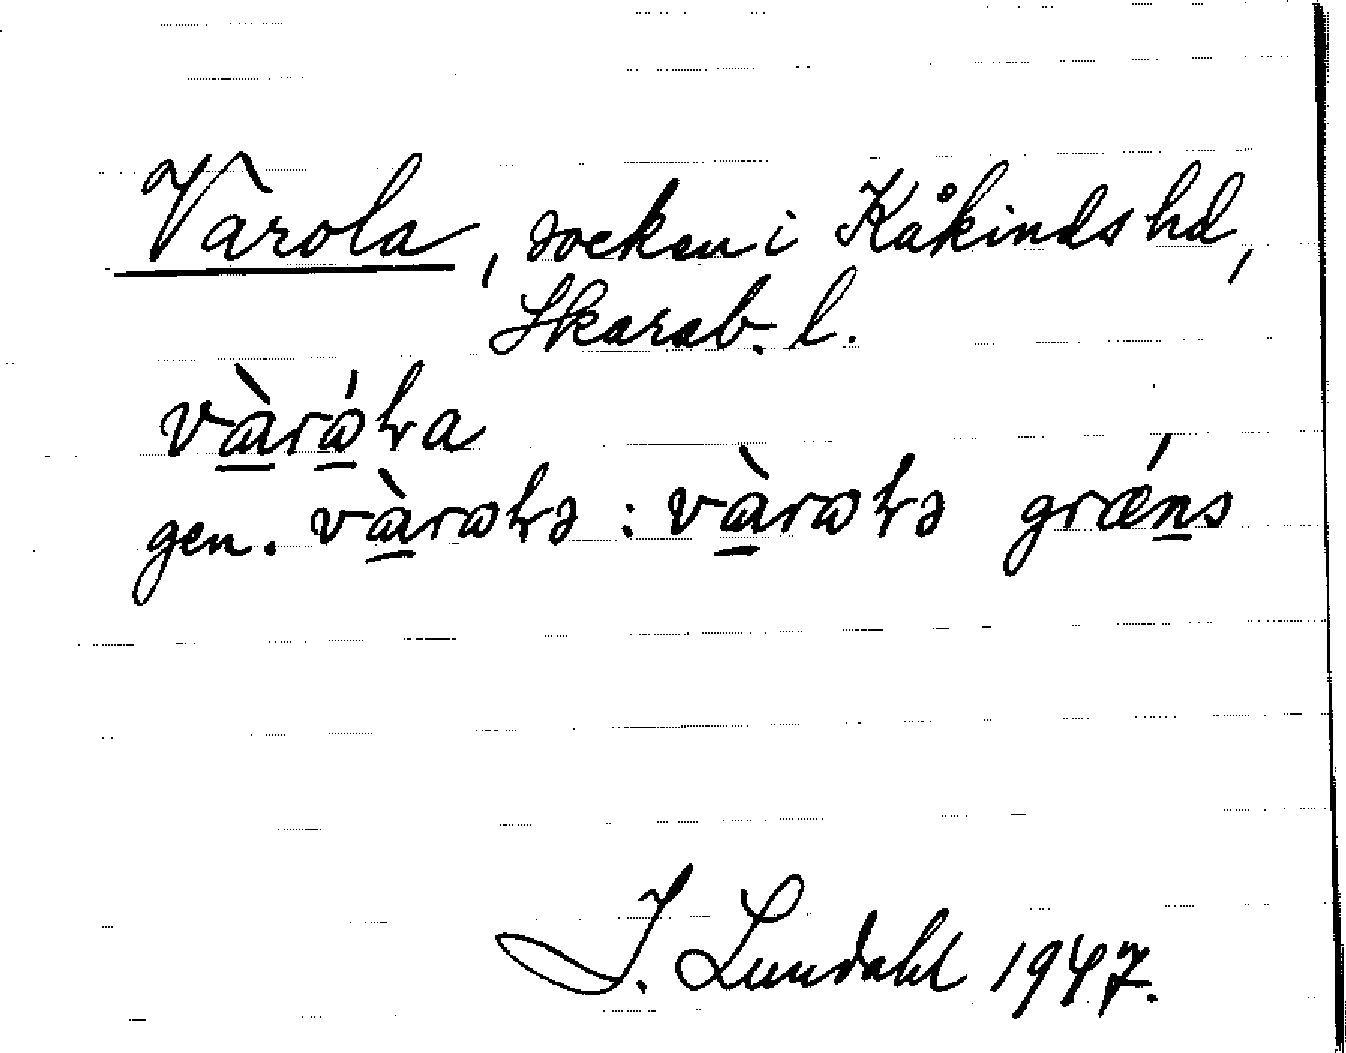 Varola, socken i Kåkinds hd,
Skarab. l.
vàrólra
gen. vàrolrs : vàrolrs grǽns
I. Lundahl 1947.